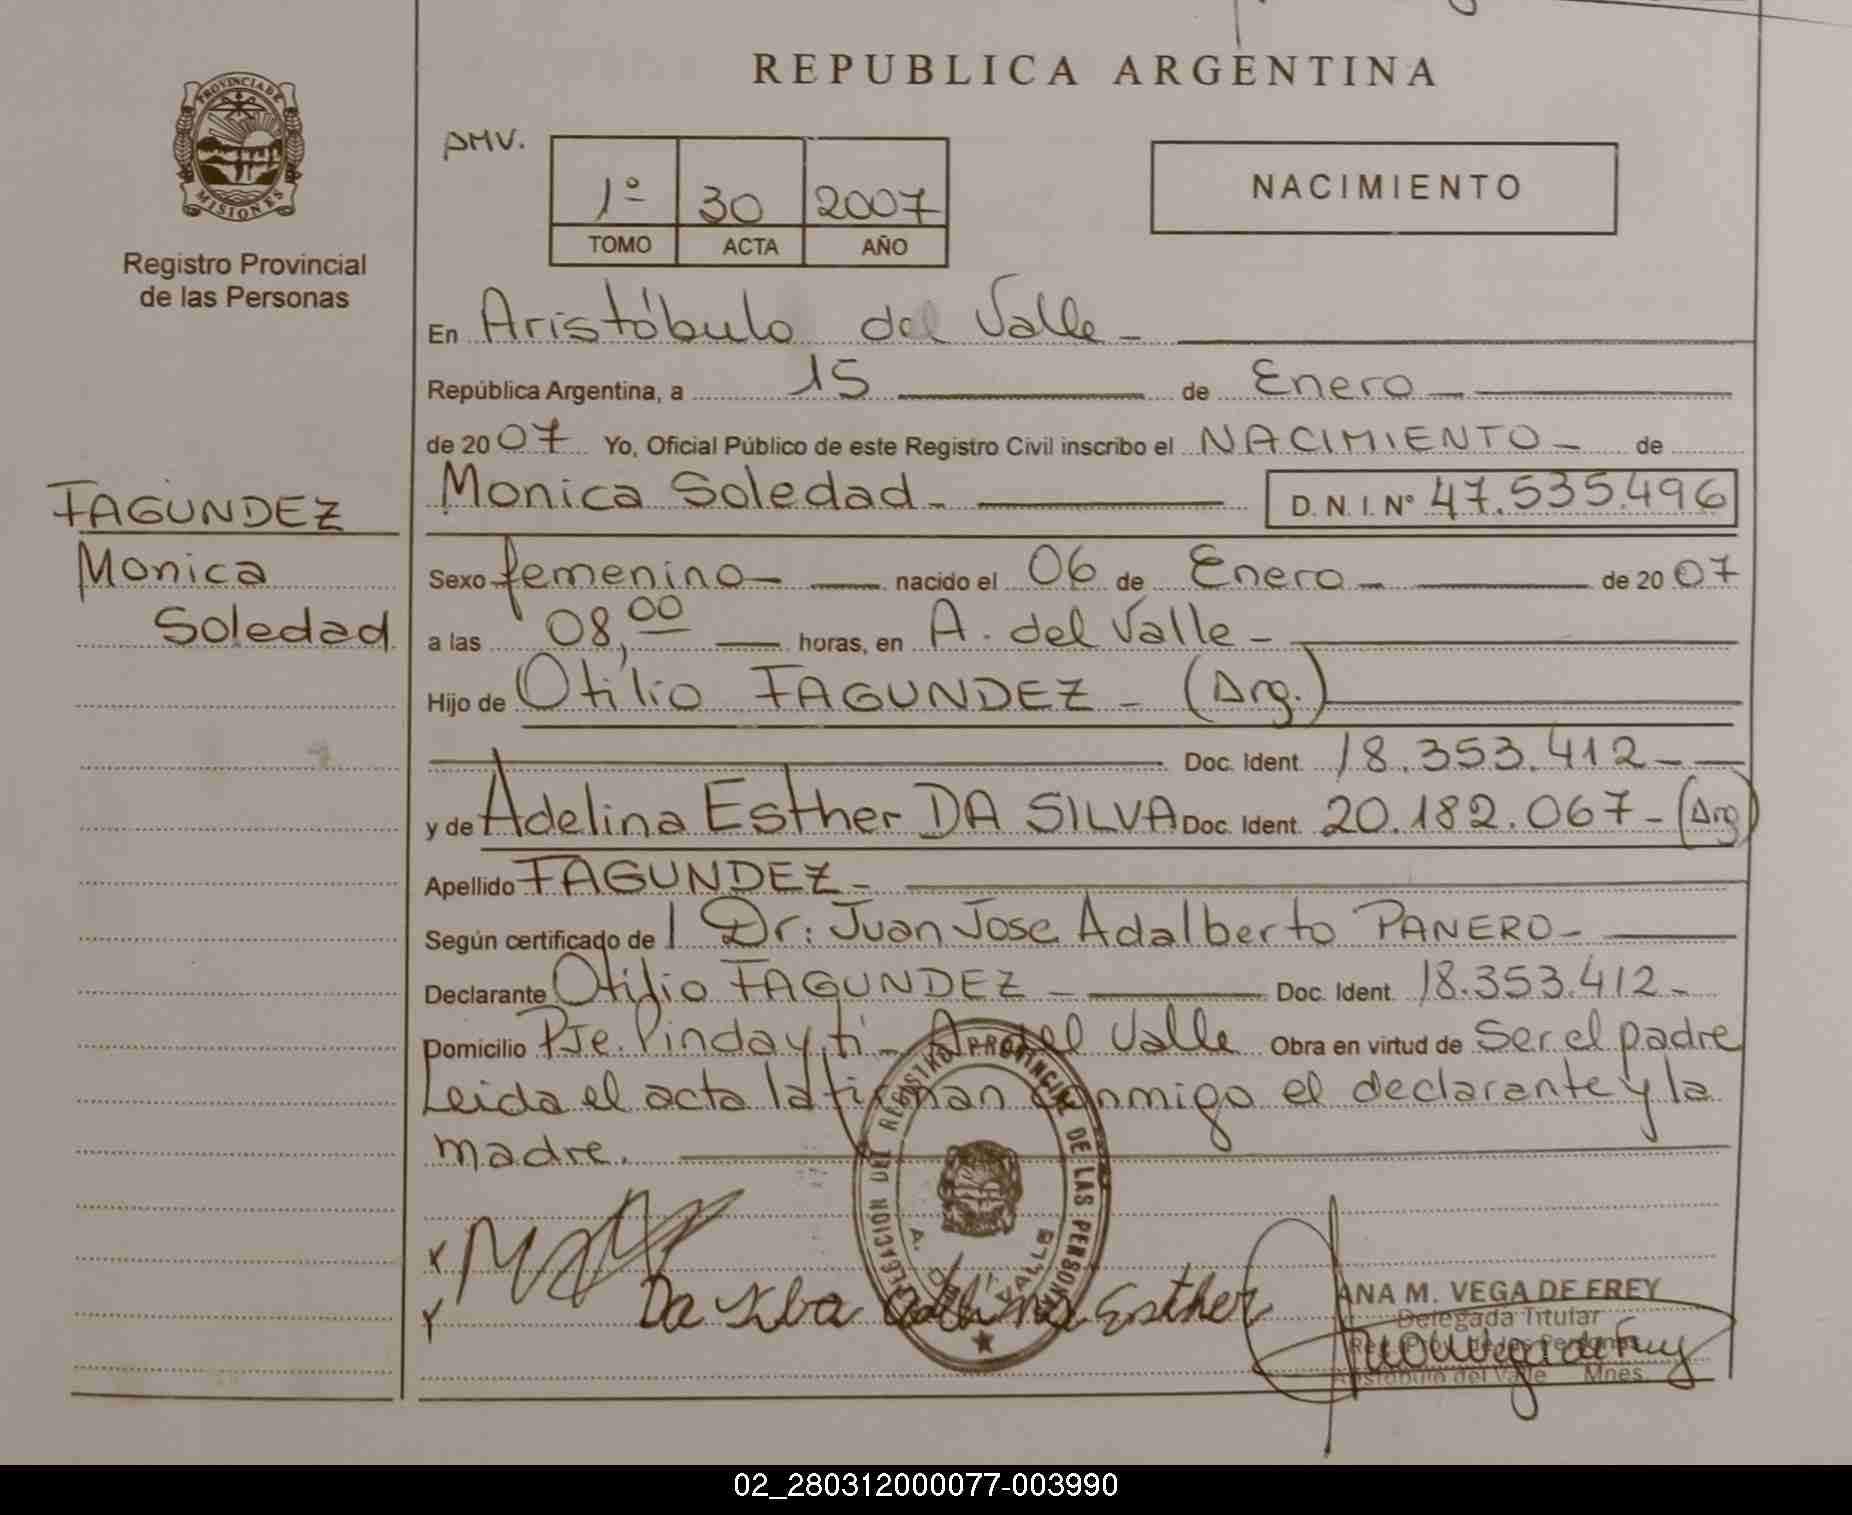 REPUBLICA ARGENTINA
PROVINCIA DE
MISIONES
Registro Provincial
de las Personas
PMV.
1º 30 2007
TOMO ACTA AÑO
NACIMIENTO
En Aristóbulo del Valle -
República Argentina, a 15 de Enero -
de 2007 Yo, Oficial Público de este Registro Civil inscribo el NACIMIENTO - de
FAGUNDEZ
Monica
Soledad
Monica Soledad - D. N. I. Nº 47.535.496
Sexo femenino - nacido el 06 de Enero - de 2007
a las 08,00 horas, en A. del Valle -
Hijo de Otilio FAGUNDEZ - (Arg.)
Doc. Ident. 18.353.412 -
y de Adelina Esther DA SILVA Doc. Ident. 20.182.067 - (Arg)
Apellido FAGUNDEZ -
Según certificado de Dr: Juan Jose Adalberto PANERO -
Declarante Otilio FAGUNDEZ - Doc. Ident. 18.353.412 -
Domicilio Pje. Pindayti - A. del Valle Obra en virtud de Ser el padre
Leida el acta la firman conmigo el declarante y la
madre.
DELEGACION DEL REGISTRO PROVINCIAL DE LAS PERSONAS
A. DEL VALLE
Da Silva Adelina Esther
ANA M. VEGA DE FREY
Delegada Titular
Aristóbulo del Valle Mnes.
02_280312000077-003990